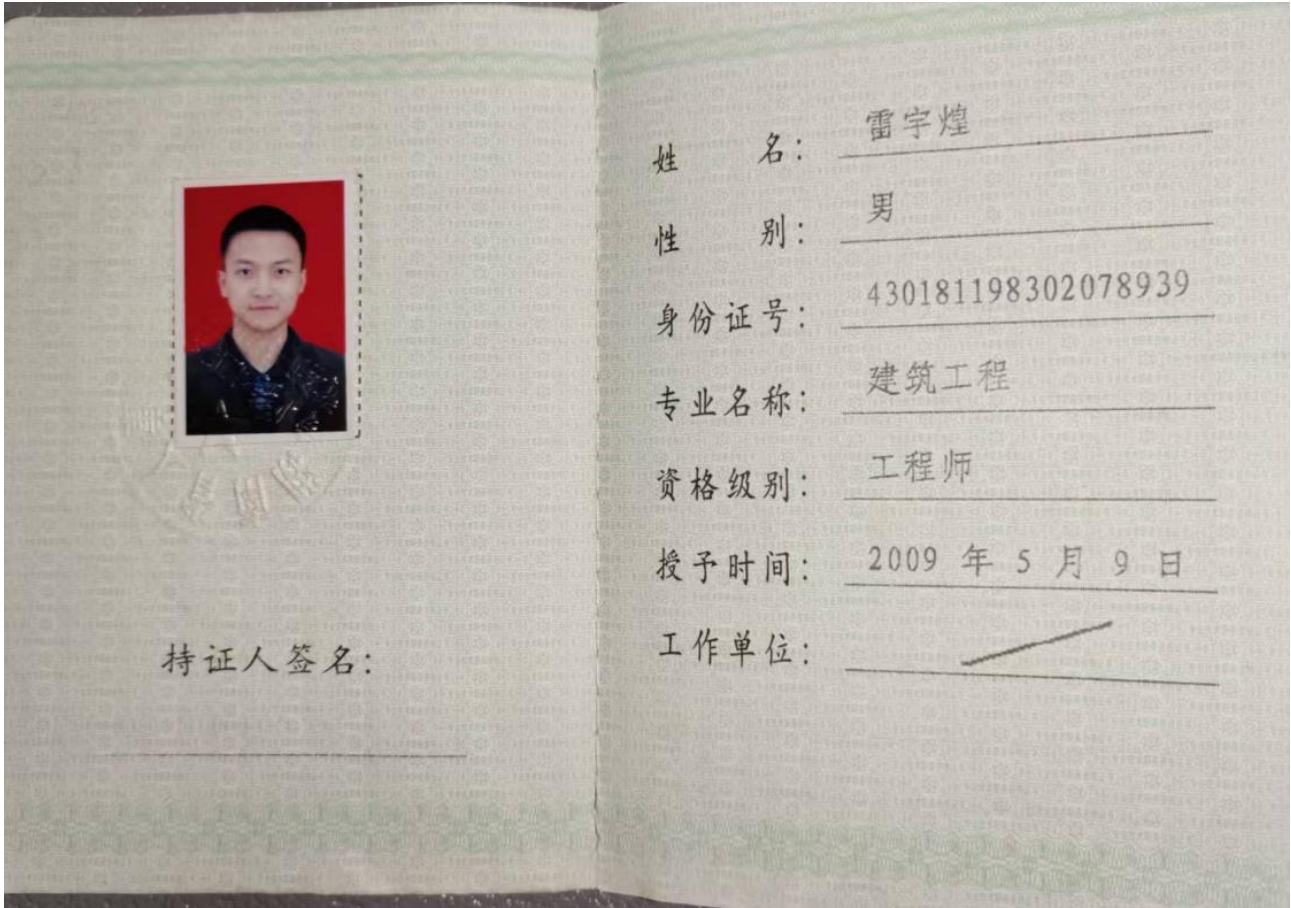 持证人签名：
姓 名： 雷宇煌
性 别： 男
身份证号： 430181198302078939
专业名称： 建筑工程
资格级别： 工程师
授予时间： 2009 年 5 月 9 日
工作单位：